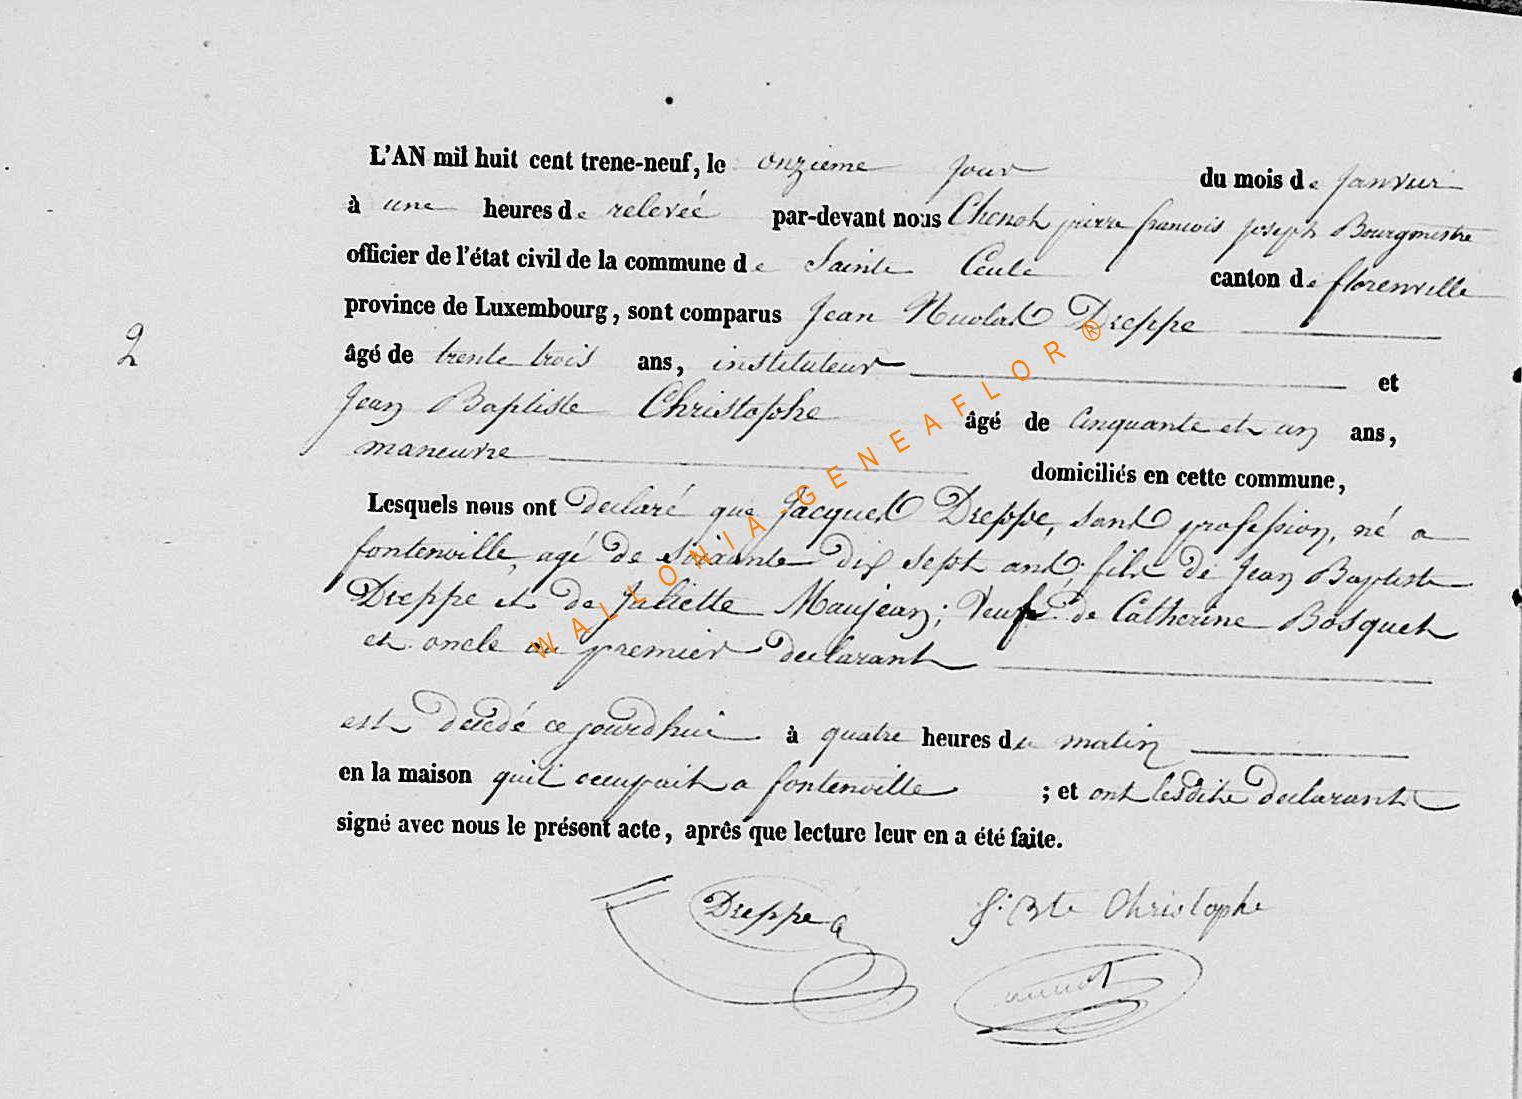 L'AN mil huit cent trene-neuf, le onzieme jour du mois de janvier
à une heures de relevée par-devant nous Chenot pierre francois joseph Bourgmestre
officier de l'état civil de la commune de Sainte Cecile canton de florenville
province de Luxembourg, sont comparus Jean Nicolas Dreppe
2
âgé de trente trois ans, instituteur et
Jean Baptiste Christophe âgé de Cinquante et un ans,
maneuvre domiciliés en cette commune,
Lesquels nous ont declaré que Jacques Dreppe, sans profession, né a
fontenoille, agé de soixante dix sept ans, fils de Jean Baptiste
Dreppe et de Maujean; Veuf de Catherine Bosquet
et oncle au premier declarant
est decedé ce jourdhui à quatre heures du matin
en la maison quil occupait a fontenoille ; et ont lesdits declarants
signé avec nous le présent acte, après que lecture leur en a été faite.
Dreppe J. Bte Christophe
WALLONIA-GENEAFLOR®